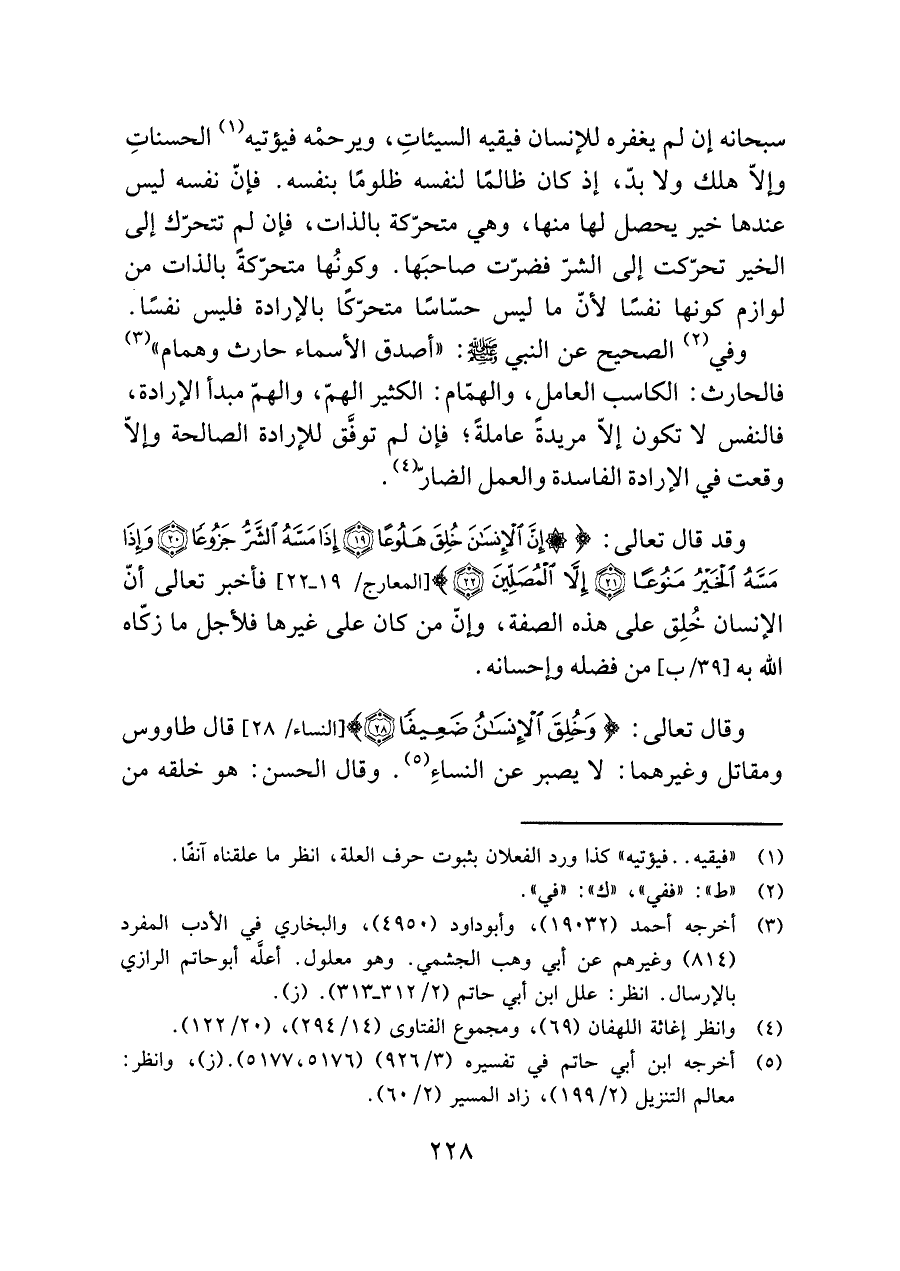 سبحانه إن لم يغفره للإنسان فيقيه السيئاتِ، ويرحمْه فيؤتيه(١) الحسناتِ
وإلاّ هلك ولا بدّ، إذ كان ظالمًا لنفسه ظلومًا بنفسه. فإنّ نفسه ليس
عندها خير يحصل لها منها، وهي متحرّكة بالذات، فإن لم تتحرّك إلى
الخير تحرّكت إلى الشرّ فضرّت صاحبَها. وكونُها متحرّكةً بالذات من
لوازم كونها نفسًا لأنّ ما ليس حسّاسًا متحرّكًا بالإرادة فليس نفسًا.
وفي(٢) الصحيح عن النبي ﷺ: «أصدق الأسماء حارث وهمام»(٣)
فالحارث: الكاسب العامل، والهمّام: الكثير الهمّ، والهمّ مبدأ الإرادة،
فالنفس لا تكون إلاّ مريدةً عاملةً؛ فإن لم توفَّق للإرادة الصالحة وإلاّ
وقعت في الإرادة الفاسدة والعمل الضارّ(٤).
وقد قال تعالى: ﴿ ۞ إِنَّ ٱلْإِنسَٰنَ خُلِقَ هَلُوعًا ١٩ إِذَا مَسَّهُ ٱلشَّرُّ جَزُوعًا ٢٠ وَإِذَا
مَسَّهُ ٱلْخَيْرُ مَنُوعًا ٢١ إِلَّا ٱلْمُصَلِّينَ ٢٢ ﴾[المعارج/ ١٩-٢٢] فأخبر تعالى أنّ
الإنسان خُلِق على هذه الصفة، وإنّ من كان على غيرها فلأجل ما زكّاه
الله به [٣٩/ب] من فضله وإحسانه.
وقال تعالى: ﴿ وَخُلِقَ ٱلْإِنسَٰنُ ضَعِيفًا ٢٨ ﴾[النساء/ ٢٨] قال طاووس
ومقاتل وغيرهما: لا يصبر عن النساءِ(٥). وقال الحسن: هو خلقه من
(١) «فيقيه.. فيؤتيه» كذا ورد الفعلان بثبوت حرف العلة، انظر ما علقناه آنفًا.
(٢) «ط»: «ففي»، «ك»: «في».
(٣) أخرجه أحمد (١٩٠٣٢)، وأبوداود (٤٩٥٠)، والبخاري في الأدب المفرد
(٨١٤) وغيرهم عن أبي وهب الجشمي. وهو معلول. أعلَّه أبوحاتم الرازي
بالإرسال. انظر: علل ابن أبي حاتم (٢/ ٣١٢-٣١٣). (ز).
(٤) وانظر إغاثة اللهفان (٦٩)، ومجموع الفتاوى (١٤/ ٢٩٤)، (٢٠/ ١٢٢).
(٥) أخرجه ابن أبي حاتم في تفسيره (٣/ ٩٢٦) (٥١٧٦، ٥١٧٧).(ز)، وانظر:
معالم التنزيل (٢/ ١٩٩)، زاد المسير (٢/ ٦٠).
٢٢٨